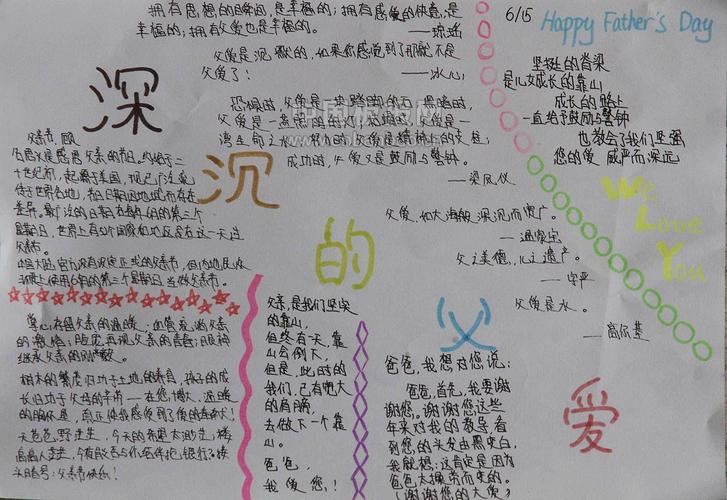 拥有思想的瞬间，是幸福的；拥有感受的快意，是
幸福的；拥有父爱也是幸福的。——琼瑶
父爱是沉默的，如果你感觉到了那就不是
父爱了！——冰心
恐惧时，父爱是一块踏脚的石；黑暗时，
父爱是一盏照明的灯；枯竭时，父爱是一
湾生命之水；努力时，父爱是精神上的支柱；
成功时，父爱又是鼓励与警钟。
——梁凤仪
父爱，如大海般深沉而宽广。
父之美德，儿之遗产。
父爱是水。
——高尔基
6/15 Happy Father's Day
坚挺的脊梁
是儿女成长的靠山
成长的路上
一直给予鼓励与警钟
也教会了我们坚强
您的爱 威严而深远
We
Love
You
深
沉
的
父
爱
父亲节，顾
名思义是感恩父亲的节日。约始于二
十世纪初，起源于美国，现已广泛流
传于世界各地，节日日期因地域而存在
差异。最广泛的日期在每年6月的第三个
星期日，世界上有52个国家和地区是在这一天过
父亲节。
中国大陆官方没有设定正式的父亲节，但内地民众
习惯上使用6月的第三个星期日当做父亲节。
掌心存留父亲的温暖；血管充涌父亲
的激情；脸庞再现父亲的青春；眼神
继承父亲的刚毅。
树木的繁茂归功于土地的养育，孩子的成
长归功于父母的辛劳——在您博大、温暖
的胸怀里，真正使我感受到了爱的
父亲，是我们坚实
的靠山，
但终有一天，靠
山会倒下，
但是，此时的
我们，已有, 
的肩膀，
去做下一个靠
山。
爸爸，
我爱您！
爸爸，我想对您说：
爸爸，首先，我要谢
谢您。谢谢您这些
年来对我的教导，看
到您的头发由黑变白，
我就想：这肯定是因为
爸爸太操劳而变的。
（谢谢您的大爱）